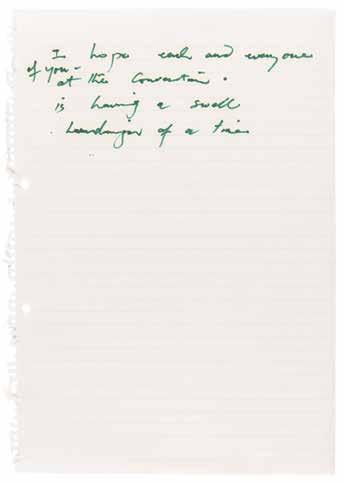 I hope each and every one
of you -
at this Convention.
is having a swell
humdinger of a time